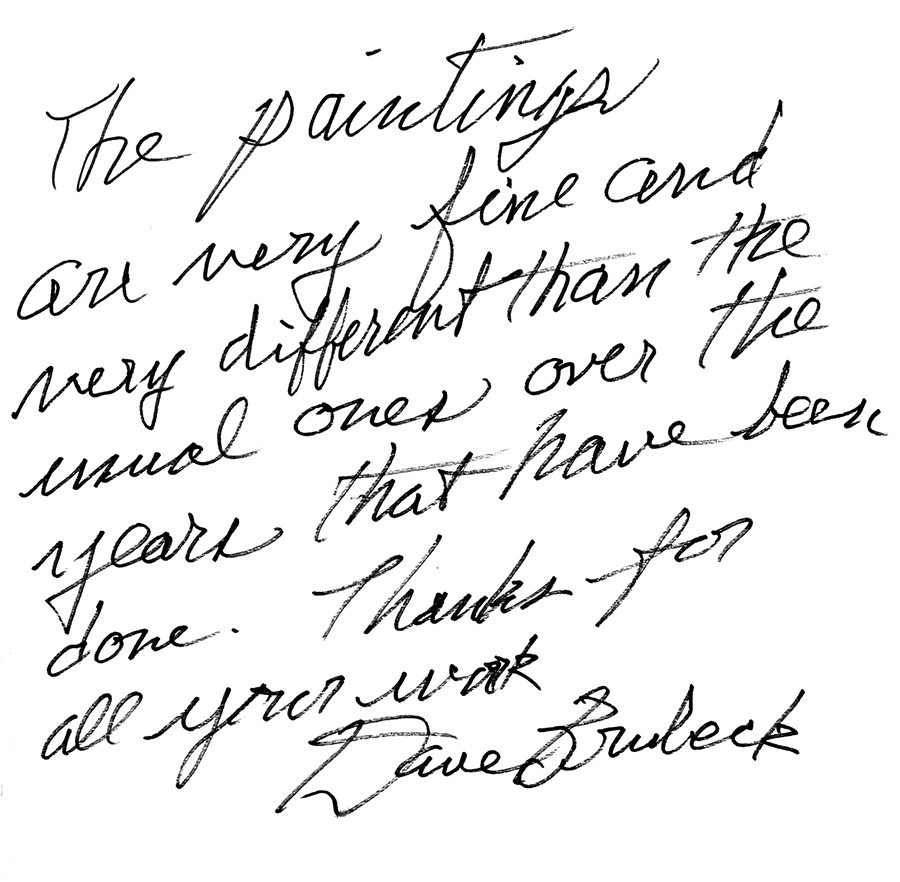 The paintings
are very fine and
very different than the
usual ones over the
years that have been
done. Thanks for
all your work
Dave Brubeck